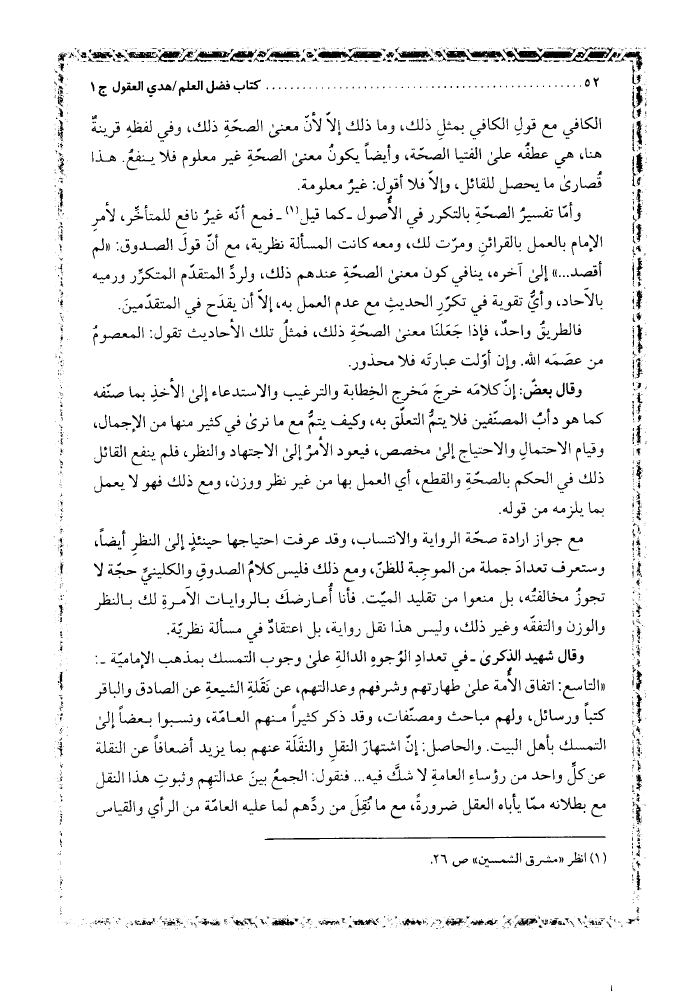 ٥٢ .................................................... كتاب فضل العلم/هدي العقول ج ١
الكافي مع قولِ الكافي بمثلِ ذلك، وما ذلك إلاّ لأنّ معنىٰ الصحّةِ ذلك، وفي لفظهِ قرينةٌ
هنا، هي عطفُه علىٰ الفتيا الصحّة، وأيضاً يكونُ معنىٰ الصحّةِ غير معلوم فلا ينفعُ. هذا
قُصارىٰ ما يحصل للقائل، وإلاّ فلا أقول: غيرُ معلومة.
وأمّا تفسيرُ الصحّةِ بالتكرر في الأُصول ـ كما قيل(١) ـ فمع أنّه غيرُ نافع للمتأخّر، لأمرِ
الإمام بالعمل بالقرائنِ ومرّت لك، ومعه كانت المسألة نظرية، مع أنّ قولَ الصدوق: «لم
أقصد...» إلىٰ آخره، ينافي كون معنىٰ الصحّةِ عندهم ذلك، ولردِّ المتقدّم المتكرّر ورميه
بالآحاد، وأيُّ تقوية في تكرّرِ الحديثِ مع عدم العمل به، إلاّ أن يقدَح في المتقدّمينَ.
فالطريقُ واحدٌ، فإذا جَعَلنَا معنىٰ الصحّةِ ذلك، فمثلُ تلك الأحاديث تقول: المعصومُ
من عصَمَه الله. وإن أوّلت عبارتَه فلا محذور.
وقال بعضٌ: إنّ كلامَه خرجَ مَخرجِ الخِطابة والترغيب والاستدعاء إلىٰ الأخذِ بما صنّفه
كما هو دأبُ المصنّفين فلا يتمُّ التعلّق به، وكيف يتمُّ مع ما نرىٰ في كثير منها من الإجمال،
وقيام الاحتمالِ والاحتياج إلىٰ مخصص، فيعود الأمرُ إلىٰ الاجتهاد والنظر، فلم ينفع القائل
ذلك في الحكم بالصحّةِ والقطع، أي العمل بها من غير نظر ووزن، ومع ذلك فهو لا يعمل
بما يلزمه من قوله.
مع جواز ارادة صحّة الرواية والانتساب، وقد عرفت احتياجها حينئذٍ إلىٰ النظرِ أيضاً،
وستعرف تعدادَ جملة من الموجِبة للظنّ، ومع ذلك فليس كلامُ الصدوقِ والكلينيِّ حجّة لا
تجوزُ مخالفتُه، بل منعوا من تقليد الميّت. فأنا أُعارضكَ بالروايات الآمرةِ لك بالنظر
والوزن والتفقّه وغير ذلك، وليس هذا نقل رواية، بل اعتقادٌ في مسألة نظريّة.
وقال شهيد الذكرىٰ ـ في تعدادِ الوُجوهِ الدالة علىٰ وجوب التمسك بمذهب الإماميّة ـ:
«التاسع: اتفاق الأُمة علىٰ طهارتهم وشرفهم وعدالتهم، عن نَقَلةِ الشيعةِ عن الصادق والباقر
كتباً ورسائل، ولهم مباحث ومصنّفات، وقد ذكر كثيراً منهم العامّة، ونسبوا بعضاً إلىٰ
التمسك بأهل البيت. والحاصل: إنّ اشتهارَ النقلِ والنقَلَة عنهم بما يزيد أضعافاً عن النقلة
عن كلِّ واحد من رؤساءِ العامةِ لا شكَّ فيه... فنقول: الجمعُ بينَ عدالتهِم وثبوتِ هذا النقل
مع بطلانه ممّا يأباه العقل ضرورةً، مع ما نُقِلَ من ردِّهم لما عليه العامّة من الرأي والقياس
(١) انظر «مشرق الشمسين» ص ٢٦.